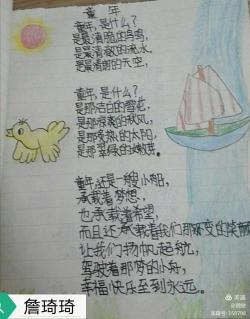 童年
童年,是什么?
是最清脆的鸟鸣,
是最清澈的流水,
是最清朗的天空,
童年,是什么?
是那洁白的雪花,
是那凉爽的秋风,
是那炎热的太阳,
是那翠绿的嫩芽。
童年,还是一艘小船,
承载着梦想,
也承载着希望,
而且还承载着我们那不变的
让我们扬帆起航,
驾驶着那梦的小舟,
幸福快乐至到永远。
詹琦琦
美篇